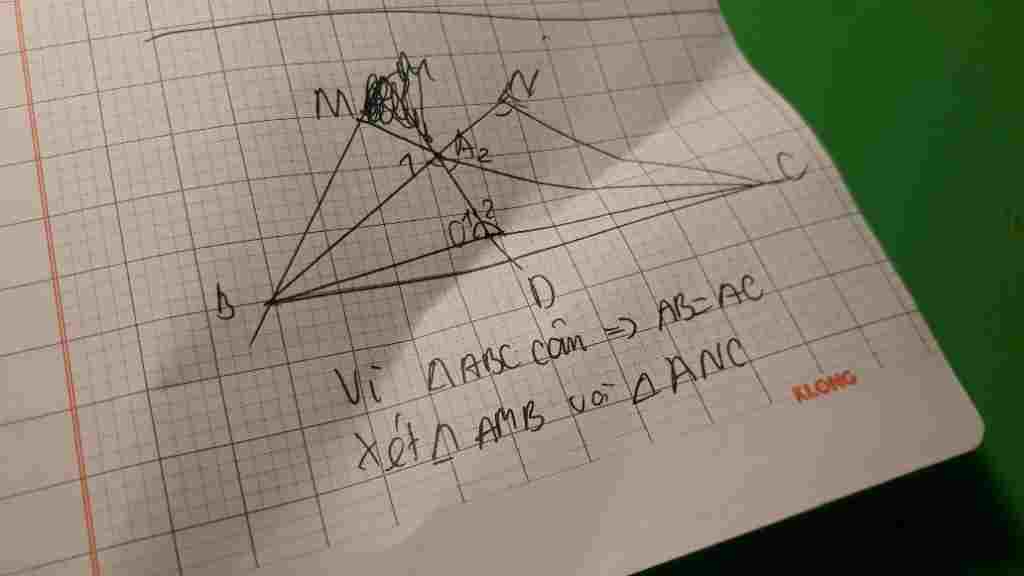 M
N
1 A 2
C
O 1 2
B
D
Vì △ABC cân => AB=AC
Xét △ AMB với △ ANC
KLONG